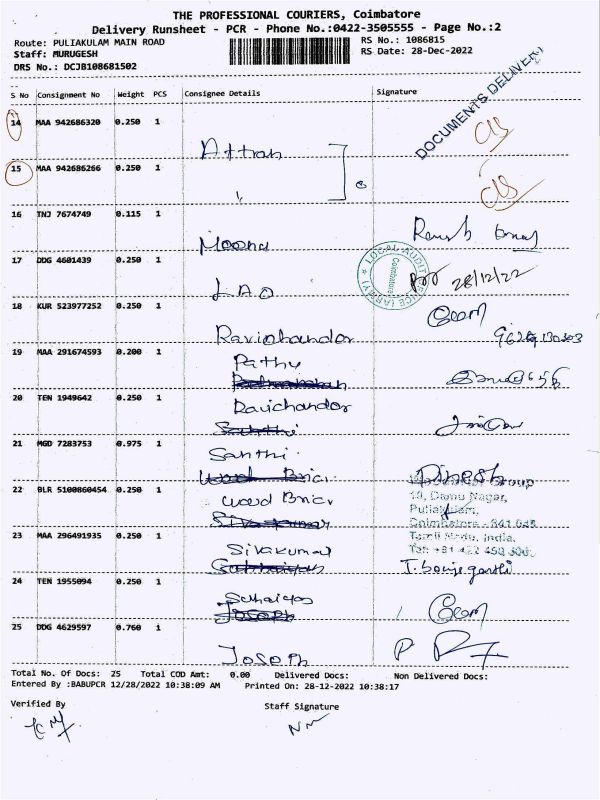 THE PROFESSIONAL COURIERS, Coimbatore
Delivery Runsheet - PCR - Phone No.:0422-3505555 - Page No.:2
Route: PULIAKULAM MAIN ROAD RS No.: 1086815
Staff: MURUGESH RS Date: 28-Dec-2022
DRS No.: DCJB108681502
DOCUMENTS DELIVERY
S No Consignment No Weight PCS Consignee Details Signature
14 MAA 942686320 0.250 1
15 MAA 942686266 0.250 1
16 TNJ 7674749 0.115 1
LOCAL AUDIT OFFICE (ARMY)
Coimbatore
17 DDG 4601439 0.250 1 28/12/22
LAO
18 KUR 523977252 0.250 1
Ravichandar
19 MAA 291674593 0.200 1 Pathy
20 TEN 1949642 0.250 1 Ravichandar
21 MGD 7283753 0.975 1 Santhi
Dinesh
Group
22 BLR 5100860454 0.250 1 Wood Bric
Puliakulam,
Coimbatore - 641 045
23 MAA 296491935 0.250 1 Sivakumar
Tamil Nadu, India.
24 TEN 1955094 0.250 1
25 DDG 4629597 0.760 1
Joseph
Total No. Of Docs: 25 Total COD Amt: 0.00 Delivered Docs: Non Delivered Docs:
Entered By :BABUPCR 12/28/2022 10:38:09 AM Printed On: 28-12-2022 10:38:17
Verified By Staff Signature